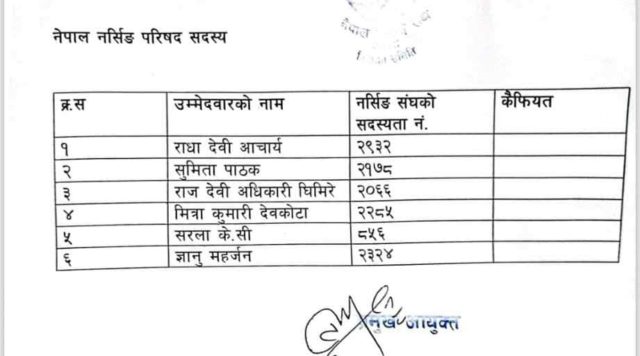 नेपाल नर्सिङ परिषद सदस्य
नेपाल
क्र.स उम्मेदवारको नाम नर्सिङ संघको सदस्यता नं. कैफियत
१ राधा देवी आचार्य २९३२
२ सुमिता पाठक २१७८
३ राज देवी अधिकारी घिमिरे २०६६
४ मित्रा कुमारी देवकोटा २२८५
५ सरला के.सी ८५६
६ ज्ञानु महर्जन २३२४
प्रमुख आयुक्त